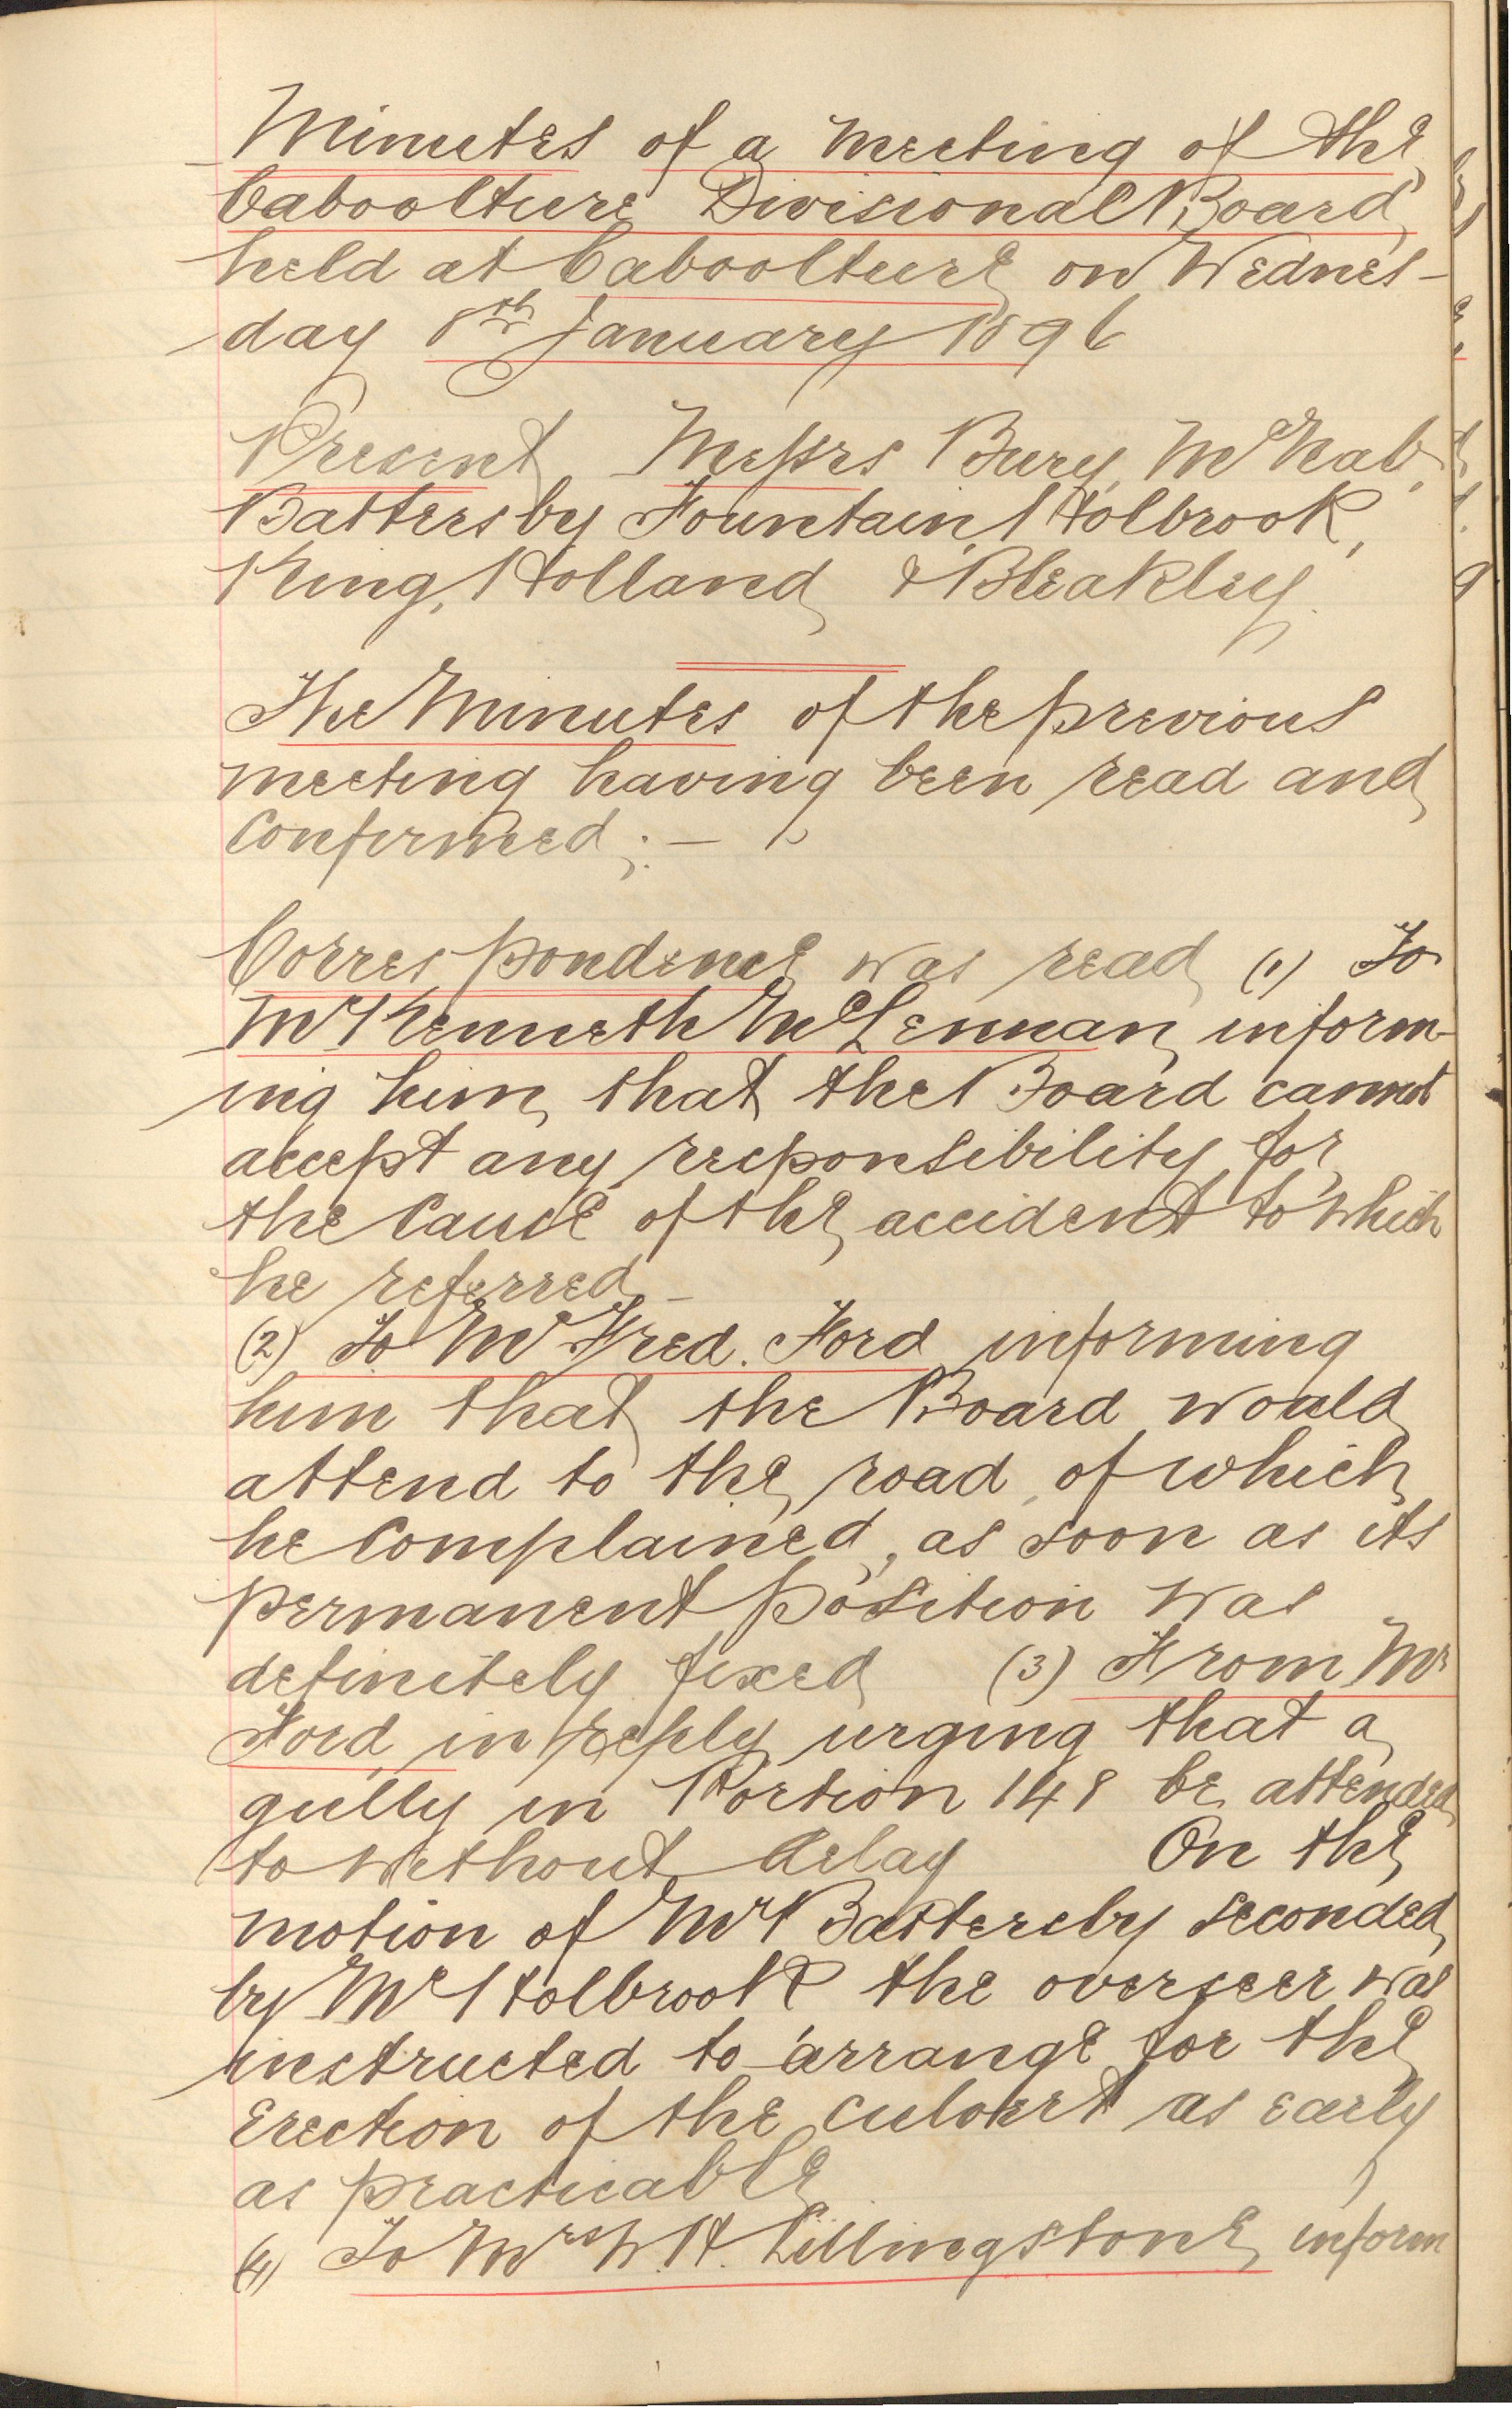 Minutes of a meeting of the
Caboolture Divisional Board
held at Caboolture on Wednes-
day 8th January 1896
Present Messrs Bury, McNab,
Battersby Fountain, Holbrook,
King, Holland & Bleakley.
The Minutes of the previous
meeting having been read and
Confirmed; -
Correspondence was read (1) To
Mr Kenneth McLennan inform-
ing him that the Board cannot
accept any responsibility for
the Cause of the accident to which
he referred -
(2) To Mr Fred. Ford informing
him that the Board would
attend to the road of which
he Complained, as soon as its
permanent position was
definitely fixed (3) From Mr
Ford in reply urging that a
gully in Portion 148 be attended
to without delay On the
motion of Mr Battersby seconded
by Mr Holbrook the overseer was
instructed to arrange for the
Erection of the culvert as early
as practicable
(4) To Mrs W. H. Lillingstone inform